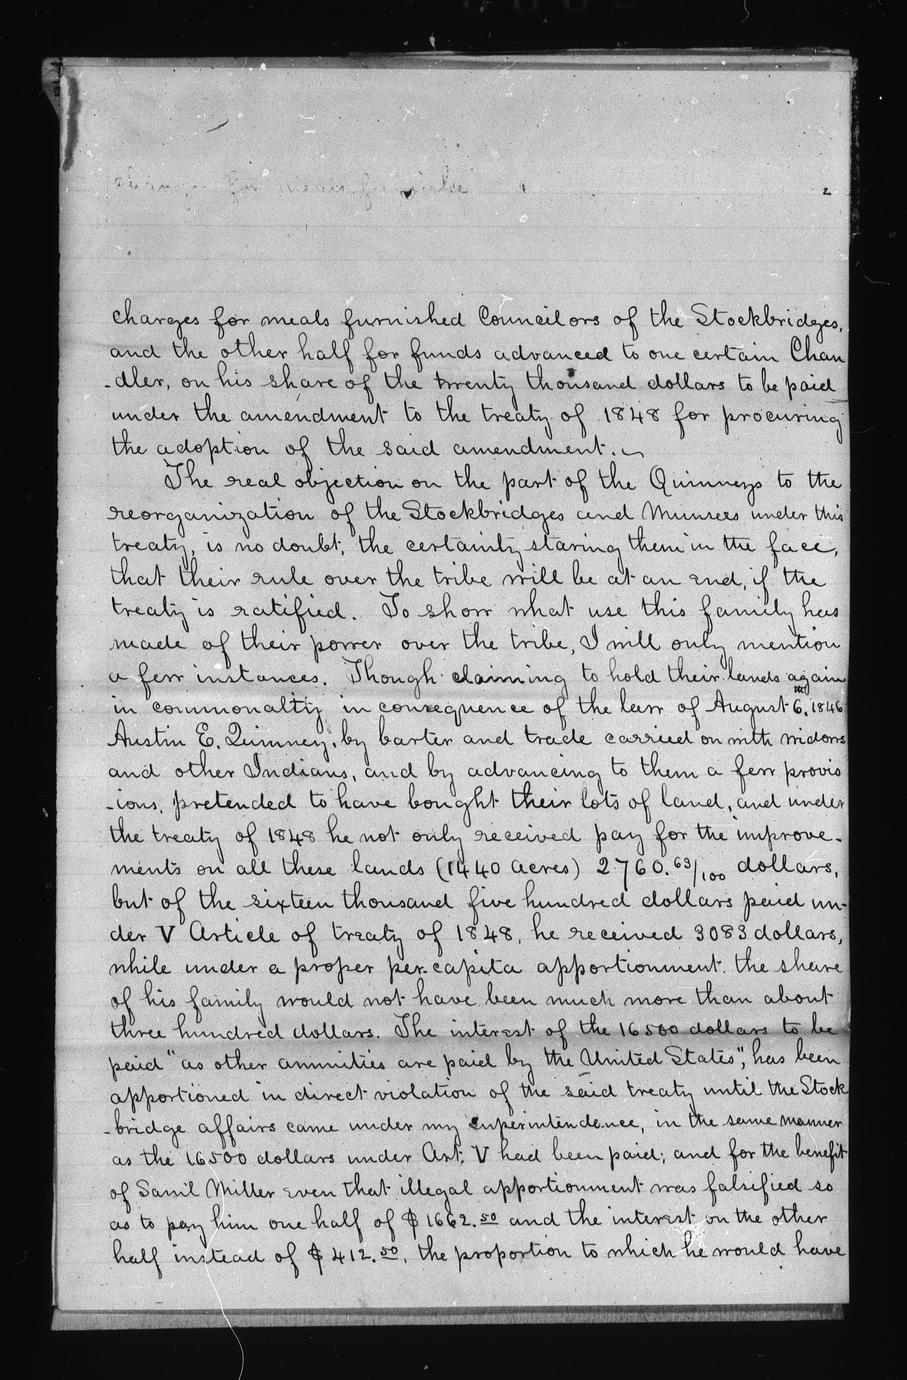 2
charges for meals furnished Councilors of the Stockbridges,
and the other half for funds advanced to one certain Chan
-dler, on his share of the twenty thousand dollars to be paid
under the amendment to the treaty of 1848 for procuring
the adoption of the said amendment.
The real objection on the part of the Quinneys to the
reorganization of the Stockbridges and Munsees under this
treaty, is no doubt, the certainty staring them in the face,
that their rule over the tribe will be at an end, if the
treaty is ratified. To show what use this family has
made of their power over the tribe, I will only mention
a few instances. Though claiming to hold their lands again
in commonalty in consequence of the law of August 6th, 1846
Austin E. Quinney, by barter and trade carried on with widows
and other Indians, and by advancing to them a few provis
-ions, pretended to have bought their lots of land, and under
the treaty of 1848 he not only received pay for the improve-
ments on all these lands (1440 acres) 2760.63/100 dollars,
but of the sixteen thousand five hundred dollars paid un-
der V Article of treaty of 1848, he received 3083 dollars,
while under a proper per-capita apportionment. the share
of his family would not have been much more than about
three hundred dollars. The interest of the 16500 dollars to be
paid "as other annuities are paid by the United States", has been
apportioned in direct violation of the said treaty until the Stock
-bridge affairs came under my superintendence, in the same manner
as the 16500 dollars under Art. V had been paid; and for the benefit
of Saml Miller even that illegal apportionment was falsified so
as to pay him one half of $1662.50 and the interest on the other
half instead of $412.50, the proportion to which he would have